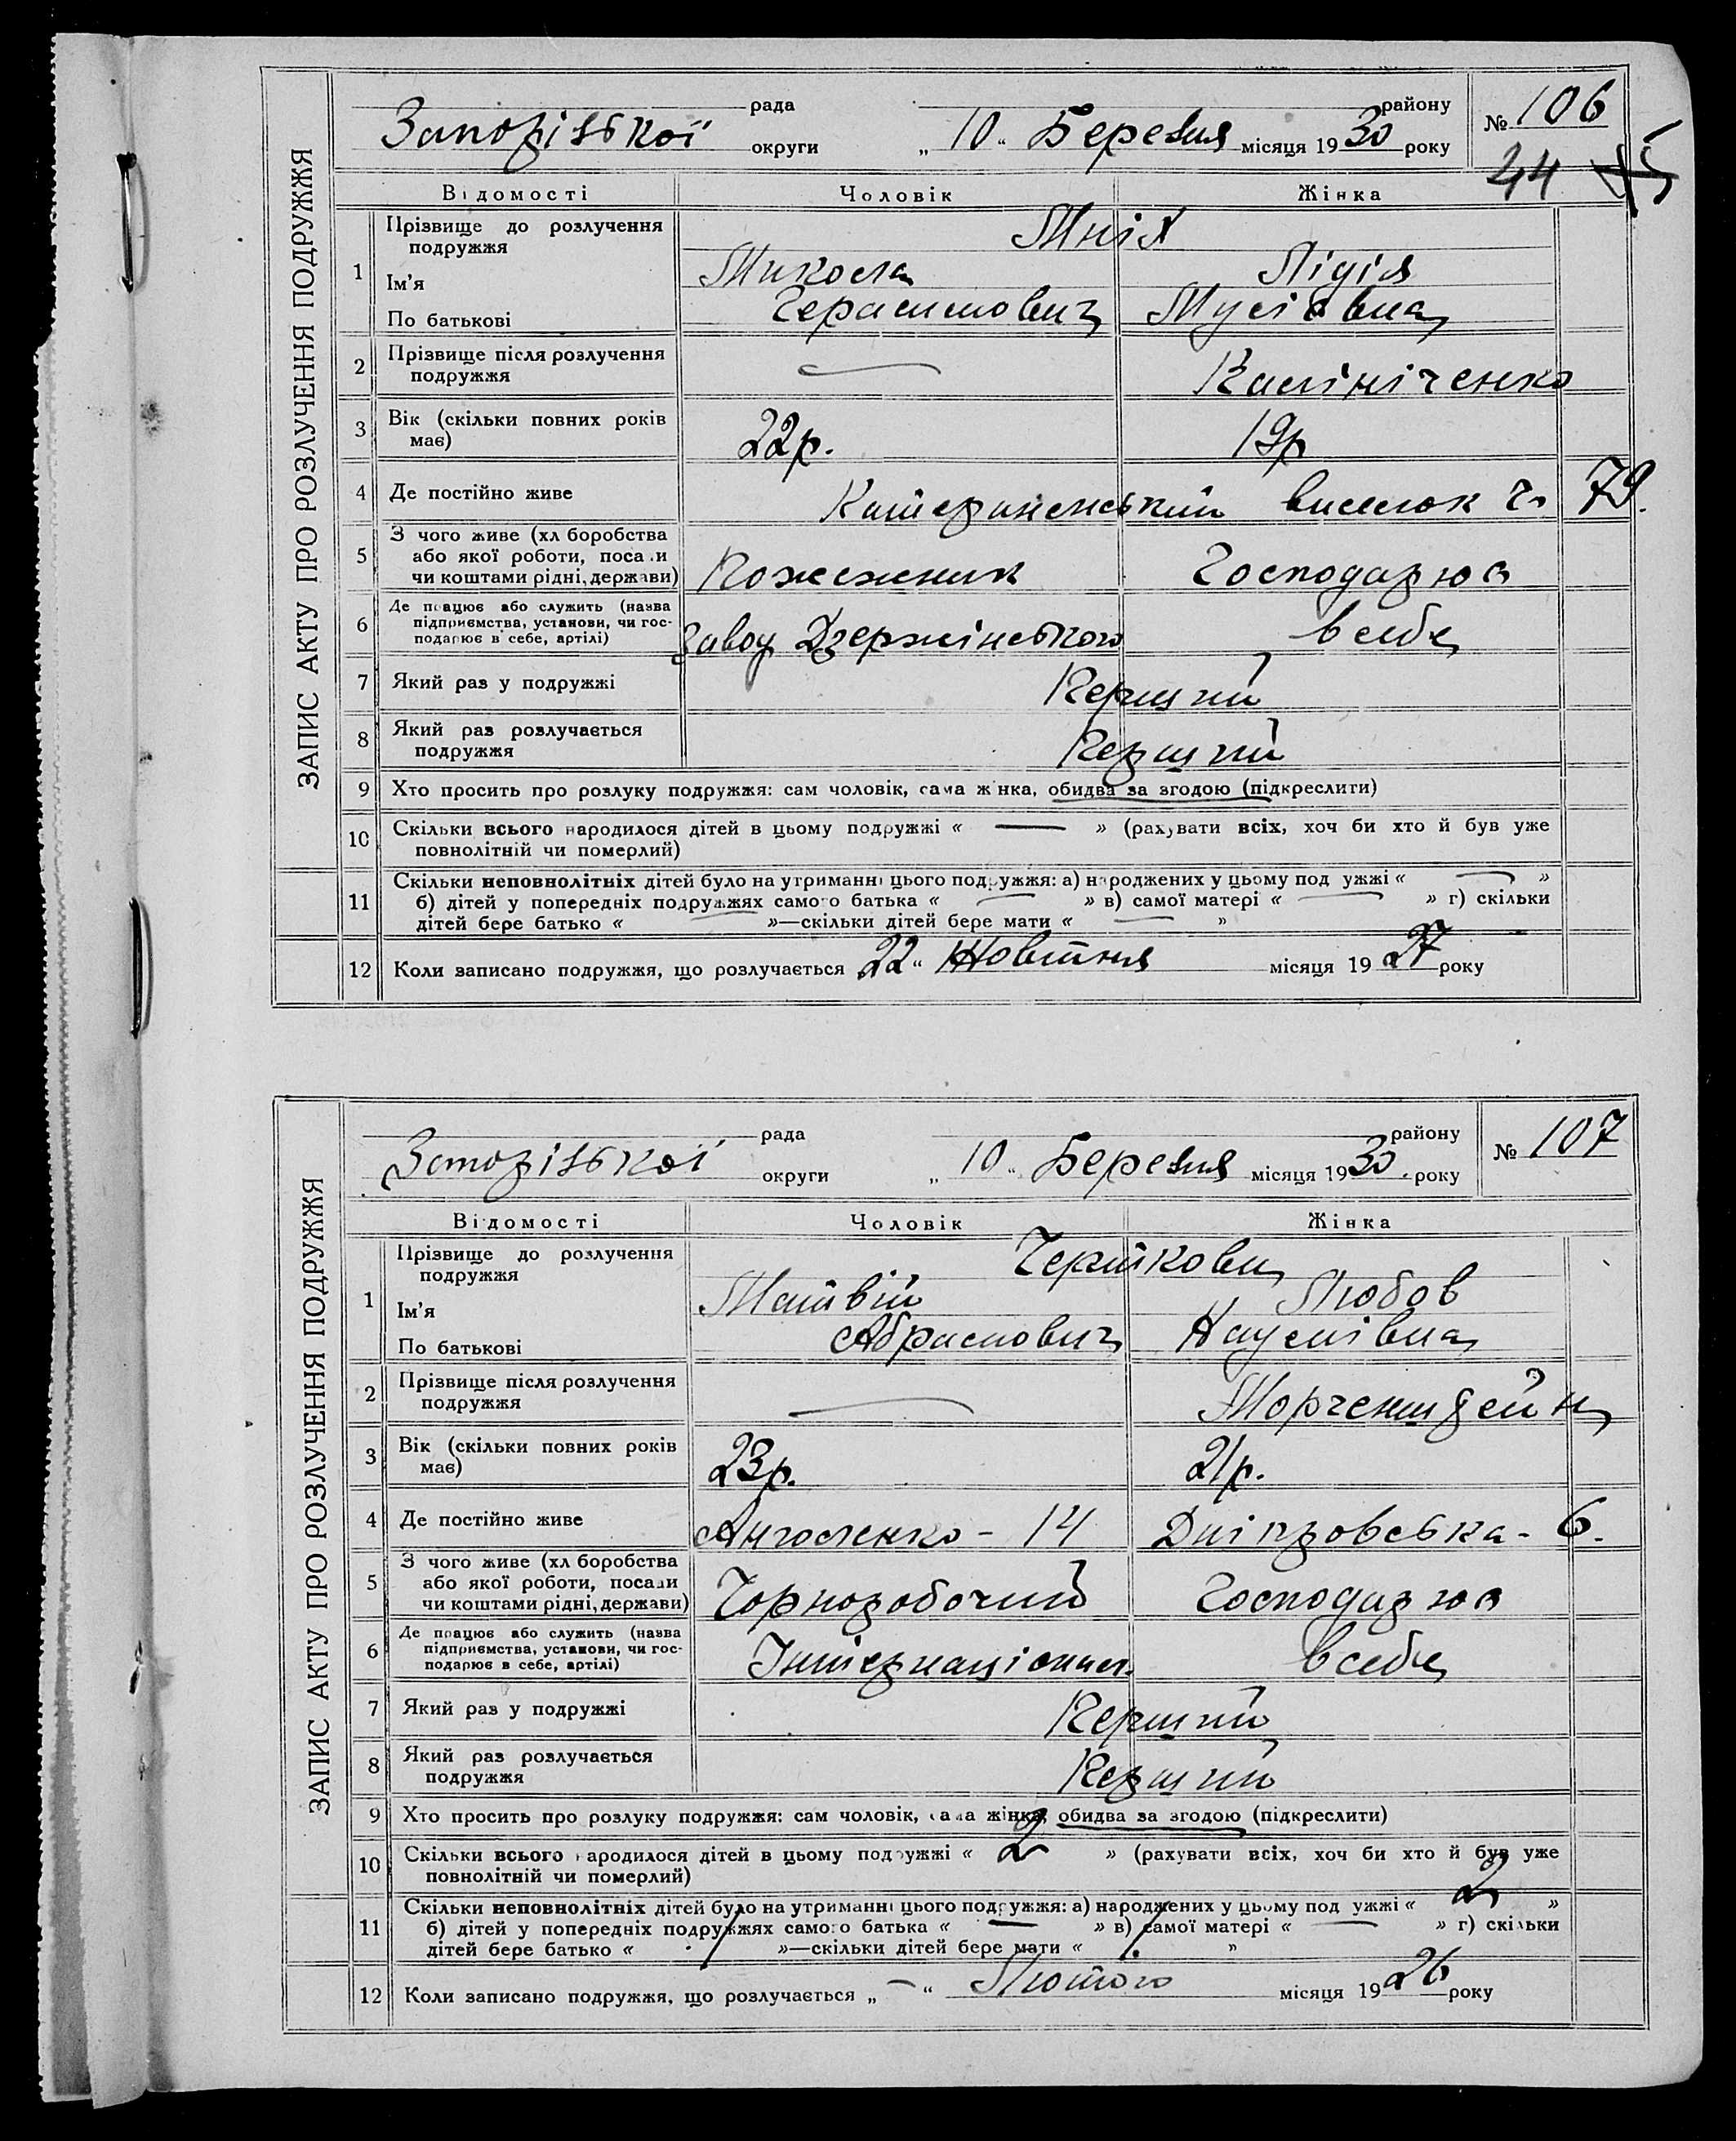 ЗАПИС АКТУ ПРО РОЗЛУЧЕННЯ ПОДРУЖЖЯ
рада району № 106
Запорізької округи „ 10 “ Березня місяця 1930 року
44
Відомості Чоловік Жінка
1 Прізвище до розлучення подружжя Мній
Ім’я Микола Лідія
По батькові Герасимович Мусіївна
2 Прізвище після розлучення подружжя — Калініченко
3 Вік (скільки повних років має) 22р. 19р
4 Де постійно живе Катериненський виселок 79.
5 З чого живе (хл боробства або якої роботи, посади чи коштами рідні, держави) Пожежник Господарює
6 Де працює або служить (назва підприємства, установи, чи господарює в себе, артілі) Завод Дзержінського в себе
7 Який раз у подружжі Перший
8 Який раз розлучається подружжя Перший
9 Хто просить про розлуку подружжя: сам чоловік, сама жінка, обидва за згодою (підкреслити)
10 Скільки всього народилося дітей в цьому подружжі « — » (рахувати всіх, хоч би хто й був уже
повнолітній чи померлий)
11 Скільки неповнолітніх дітей було на утриманні цього подружжя: а) народжених у цьому подружжі « — »
б) дітей у попередніх подружжях самого батька « — » в) самої матері « — » г) скільки
дітей бере батько « — »—скільки дітей бере мати « — »
12 Коли записано подружжя, що розлучається 22 “ Жовтня місяця 1927 року
ЗАПИС АКТУ ПРО РОЗЛУЧЕННЯ ПОДРУЖЖЯ
рада району № 107
Запорізької округи „ 10 “ Березня місяця 1930 року
Відомості Чоловік Жінка
1 Прізвище до розлучення подружжя Черткови
Ім’я Матвій Любов
По батькові Абрамович Наумівна
2 Прізвище після розлучення подружжя —
3 Вік (скільки повних років має) 23р. 21р.
4 Де постійно живе Анголенко - 14 Дніпровська - 6.
5 З чого живе (хл боробства або якої роботи, посади чи коштами рідні, держави) Чорноробочий Господарює
6 Де працює або служить (назва підприємства, установи, чи господарює в себе, артілі) Інтернаціонал. в себе
7 Який раз у подружжі Перший
8 Який раз розлучається подружжя Перший
9 Хто просить про розлуку подружжя: сам чоловік, сама жінка, обидва за згодою (підкреслити)
10 Скільки всього народилося дітей в цьому подружжі « 2 » (рахувати всіх, хоч би хто й був уже
повнолітній чи померлий)
11 Скільки неповнолітніх дітей було на утриманні цього подружжя: а) народжених у цьому подружжі « 2 »
б) дітей у попередніх подружжях самого батька « — » в) самої матері « — » г) скільки
дітей бере батько « 1 »—скільки дітей бере мати « 1 »
12 Коли записано подружжя, що розлучається „ — “ Лютого місяця 1926 року